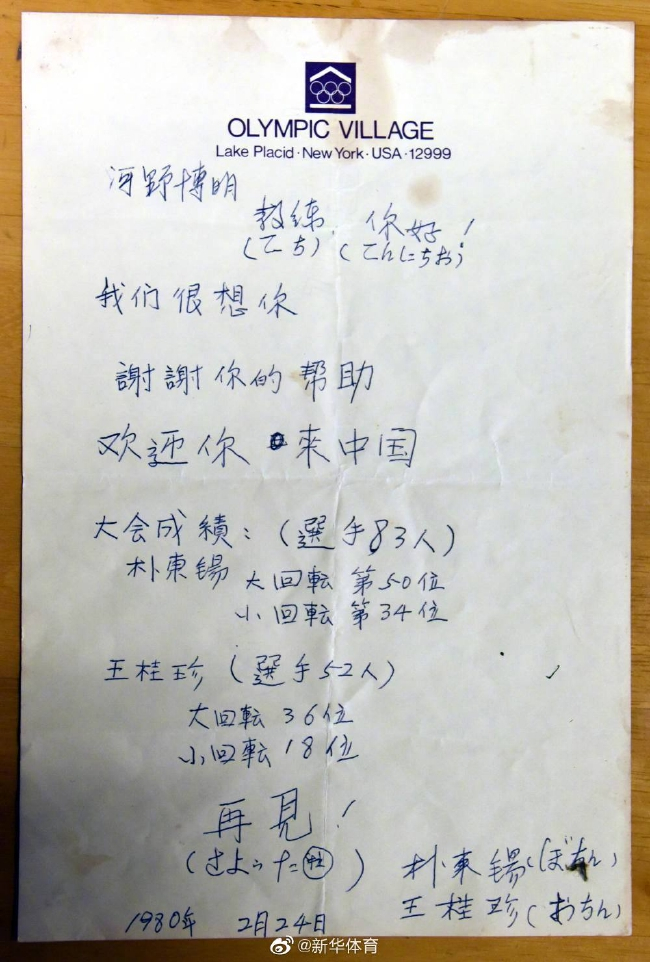 OLYMPIC VILLAGE
Lake Placid·New York·USA·12999
河野博明
教练,你好!
(こち)(こんにちお)
我们很想你
謝謝你的帮助
欢迎你 来中国
大会成績:(選手83人)
朴東锡 大回転 第50位
小回転 第34位
王桂珍(選手52人)
大回転 36位
小回転 18位
再見!
朴東锡(ぼちん)
王桂珍(おちん)
1980年 2月24日
@新华体育